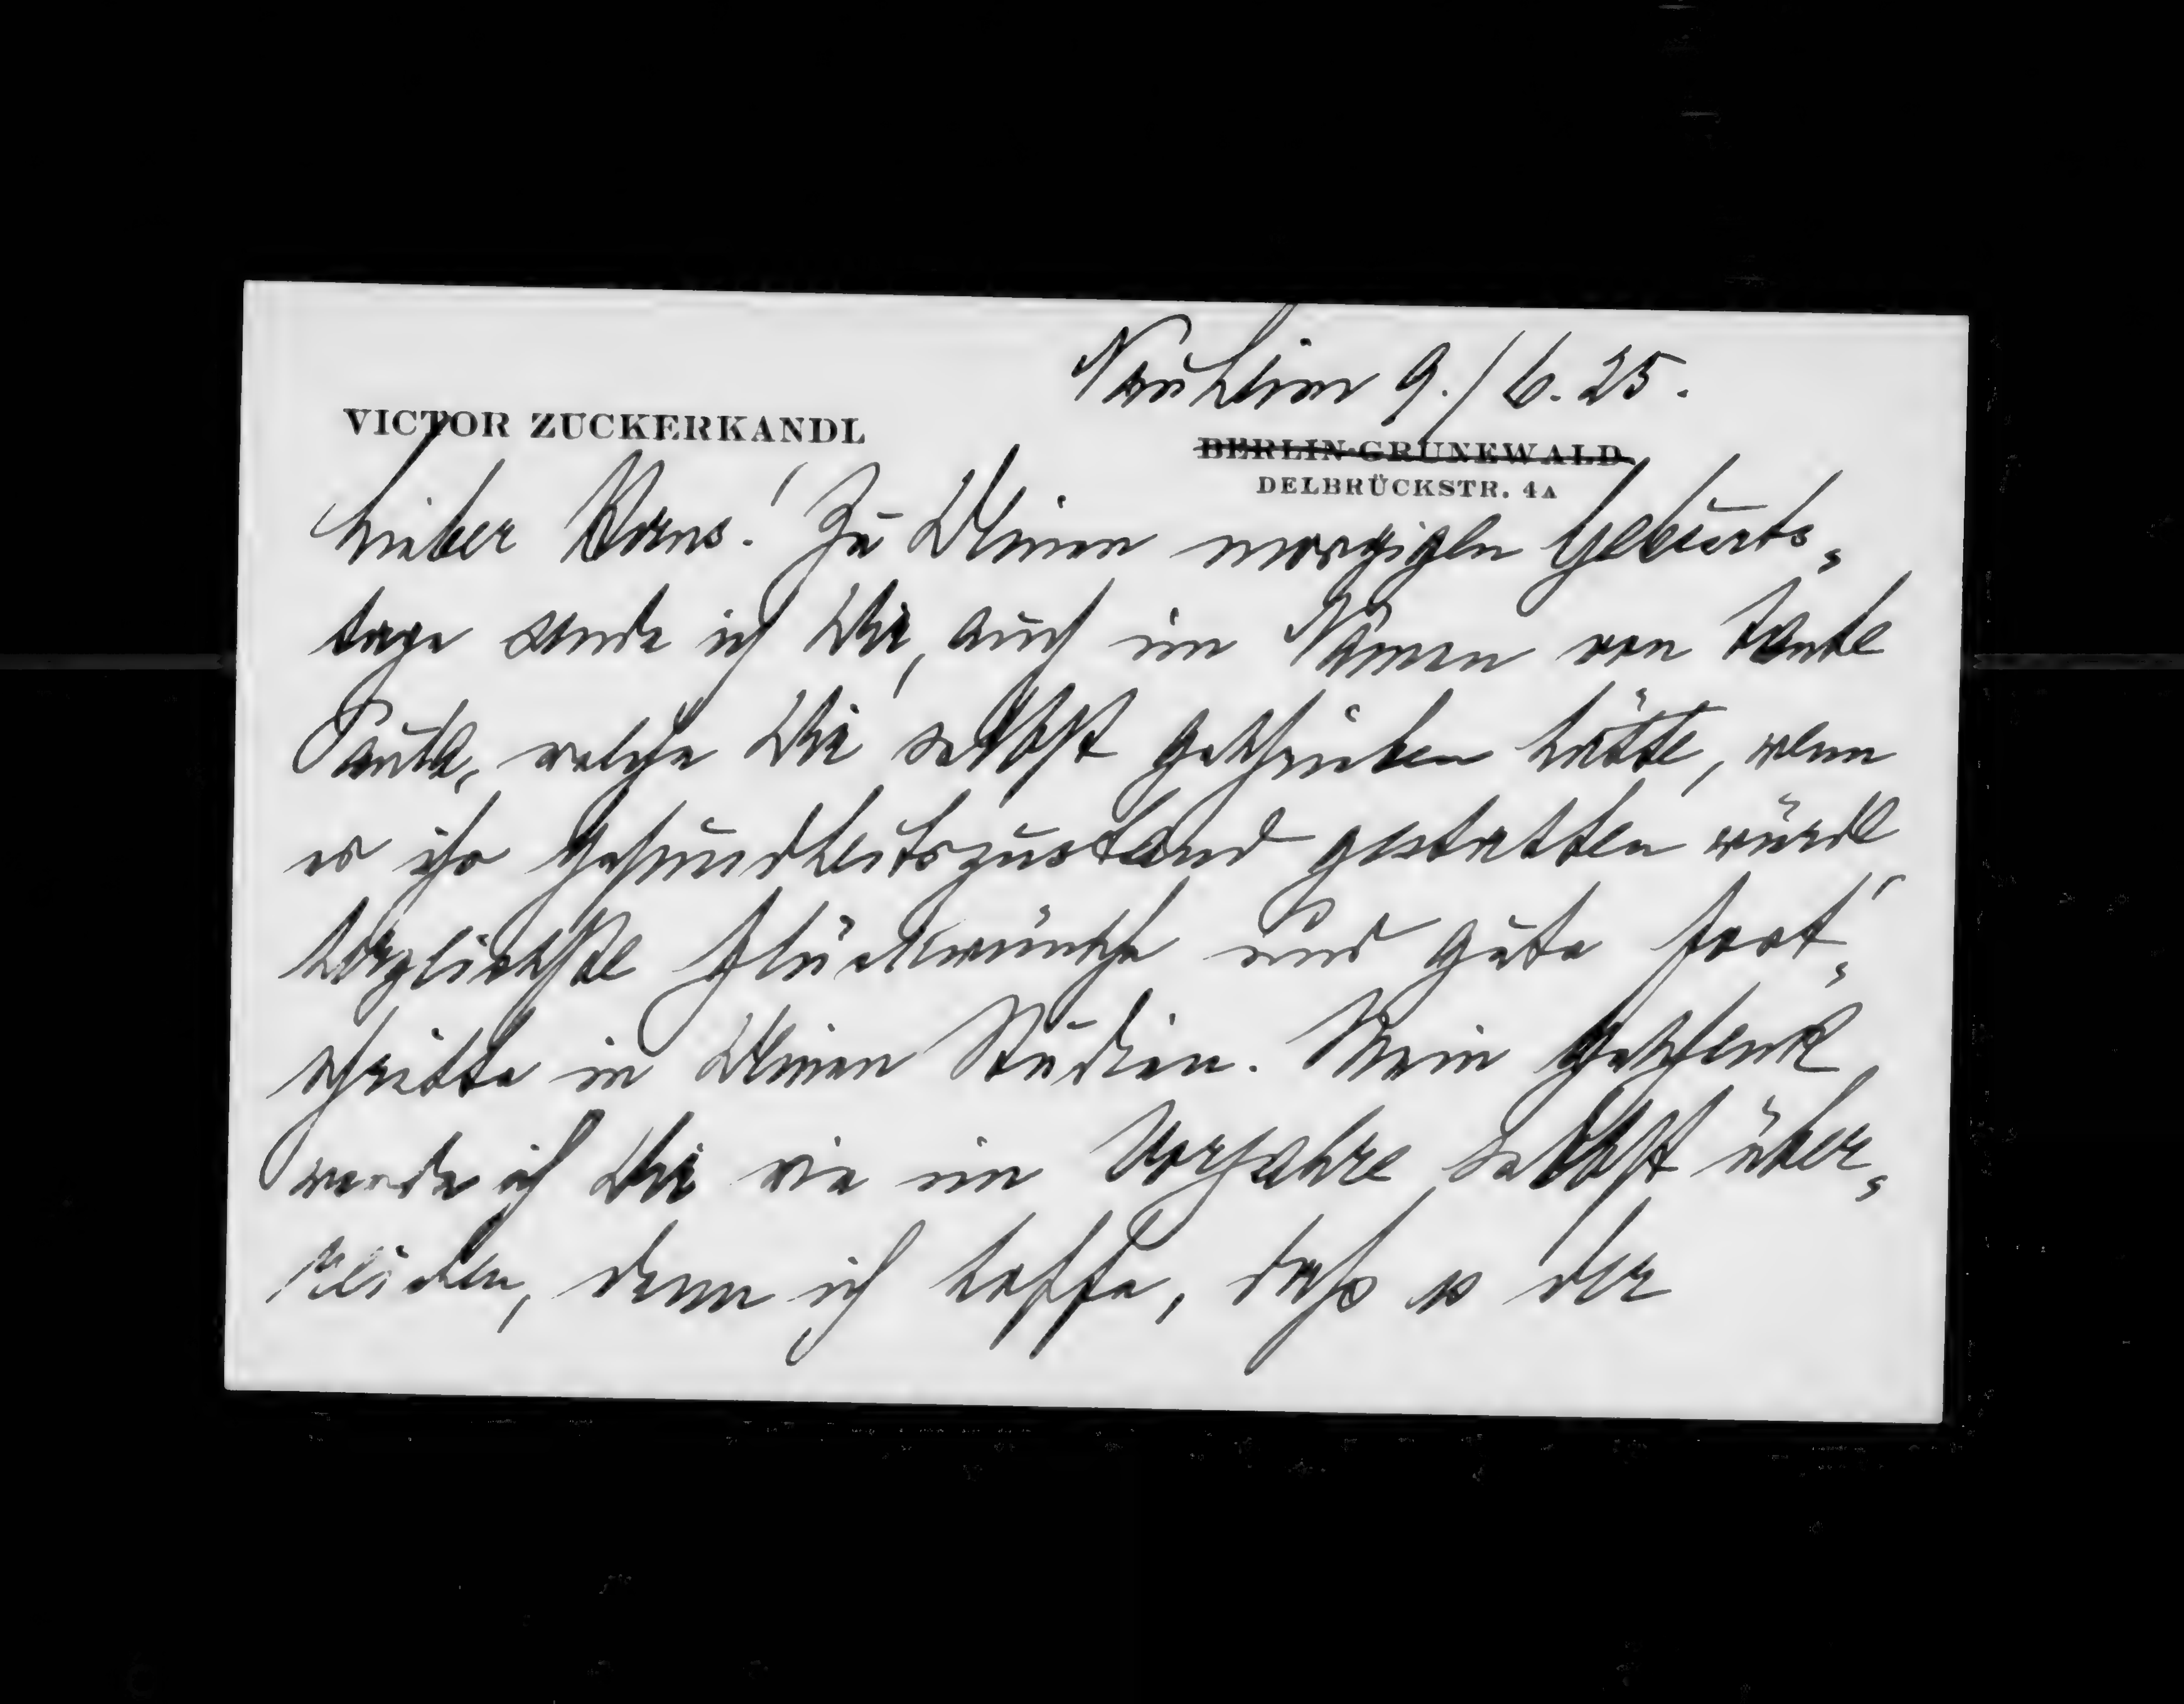 Nauheim 9./6.25.
VICTOR ZUCKERKANDL
BERLIN-GRUNEWALD
DELBRÜCKSTR. 4A
Lieber Hans! Zu Deinem morgigen Geburts-
tage sende ich Dir, auch im Namen von Tante
Paula, welche Dir selbst geschrieben hätte, wenn
es ihr Gesundheitszustand gestatten würde,
herzlichste Glückwünsche und gute Fort-
schritte in Deinen Studien. Mein Geschenk
werde ich Dir wie im Vorjahre selbst über-
reichen, denn ich hoffe, daß es der